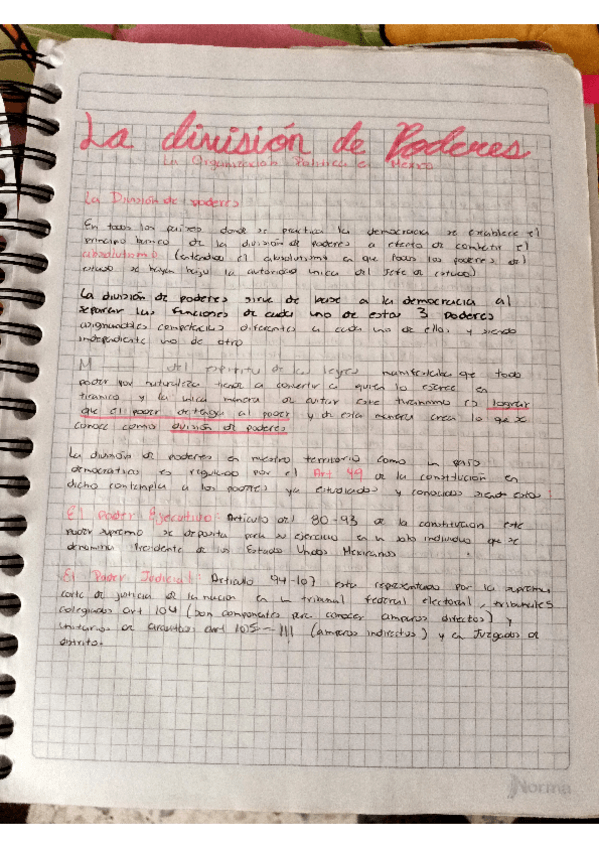 La división de Poderes
La Organización Política en México
La División de poderes
En todos los paises donde se practica la democracia se establece el
principio básico de la división de poderes a efecto de combatir el
absolutismo (entendido el absolutismo en que todos los poderes del
estado se hayan bajo la autoridad unica del Jefe de estado)
La división de poderes sirve de base a la democracia al
separar las funciones de cada uno de estos 3 poderes
asignandoles competencias diferentes a cada uno de ellos, y siendo
independiente uno de otro
M del espiritu de las leyes manifestaba que todo
poder por naturaleza tiende a convertir a quien lo ejerce en
tiranico y la unica manera de evitar este tiranismo es lograr
que el poder detenga al poder y de esta manera crea lo que se
conoce como división de poderes
La división de poderes en nuestro territorio como un país
democratico es regulado por el Art 49 de la constitución en
dicho contempla a los poderes ya estudiados y conocidos siendo estos:
El Poder Ejecutivo: Articulo del 80-93 de la constitución este
poder supremo se deposita para su ejercicio en un solo individuo que se
denomina Presidente de los Estados Unidos Mexicanos
El Poder Judicial: Articulo 94-107 esta representado por la suprema
corte de justicia de la nación en un tribunal federal electoral, tribunales
colegiados art 104 (son componentes para conocer amparos directos) y
unitarios de circuitos art 105-111 (amparos indirectos) y en Juzgados de
distrito.
Norma